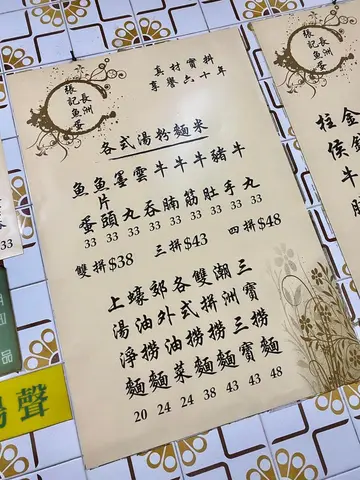 長洲
張記魚蛋
真材實料
享譽六十年
各式湯粉麵米
魚蛋 33
魚片頭 33
墨丸 33
雲吞 33
牛腩 33
牛筋 33
牛肚 33
豬手 33
牛丸 33
雙拼$38 三拼$43 四拼$48
上湯淨麵 20
蠔油撈麵 24
郊外油菜 24
各式撈麵 38
雙拼撈麵 43
潮洲三寶 43
三寶撈麵 48
長洲
張記魚蛋
柱侯牛
金
33
品
聲